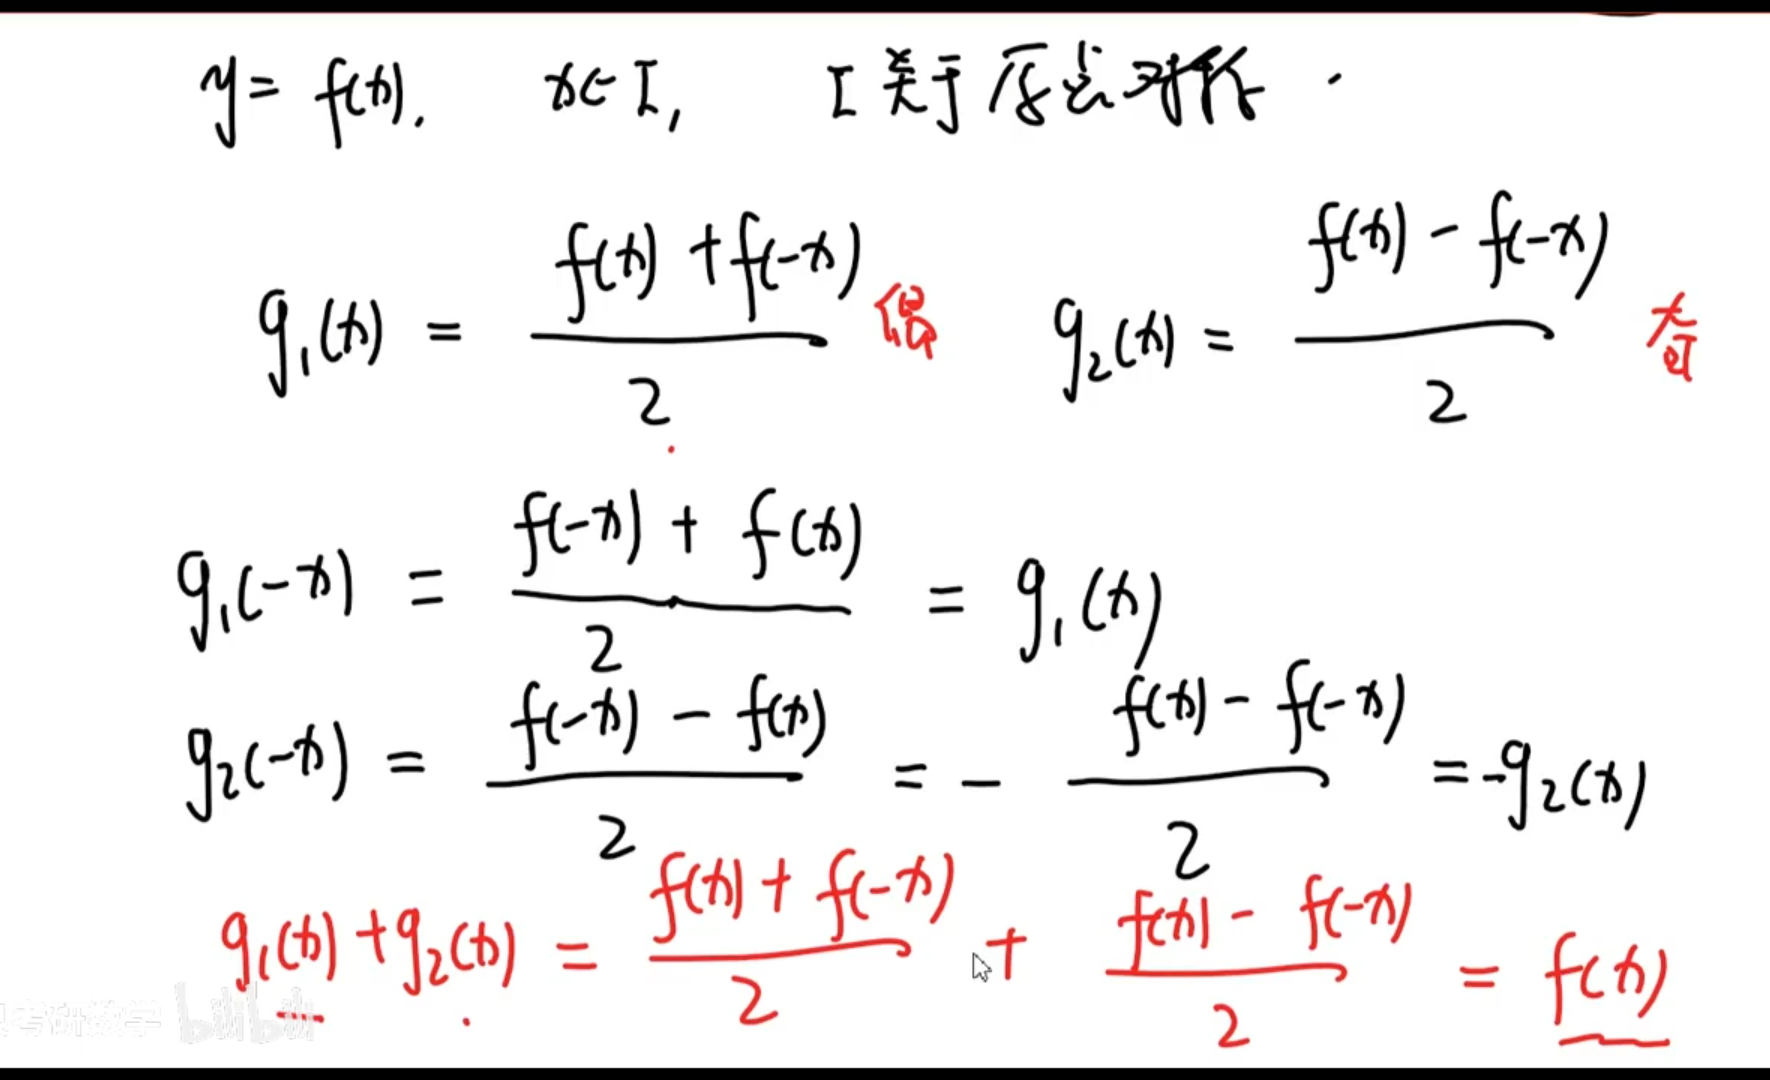 y = f(x), x∈I, I 关于原点对称.
g₁(x) = (f(x) + f(-x))/2 偶 g₂(x) = (f(x) - f(-x))/2 奇
g₁(-x) = (f(-x) + f(x))/2 = g₁(x)
g₂(-x) = (f(-x) - f(x))/2 = - (f(x) - f(-x))/2 = -g₂(x)
g₁(x) + g₂(x) = (f(x) + f(-x))/2 + (f(x) - f(-x))/2 = f(x)
考研数学 bilibili